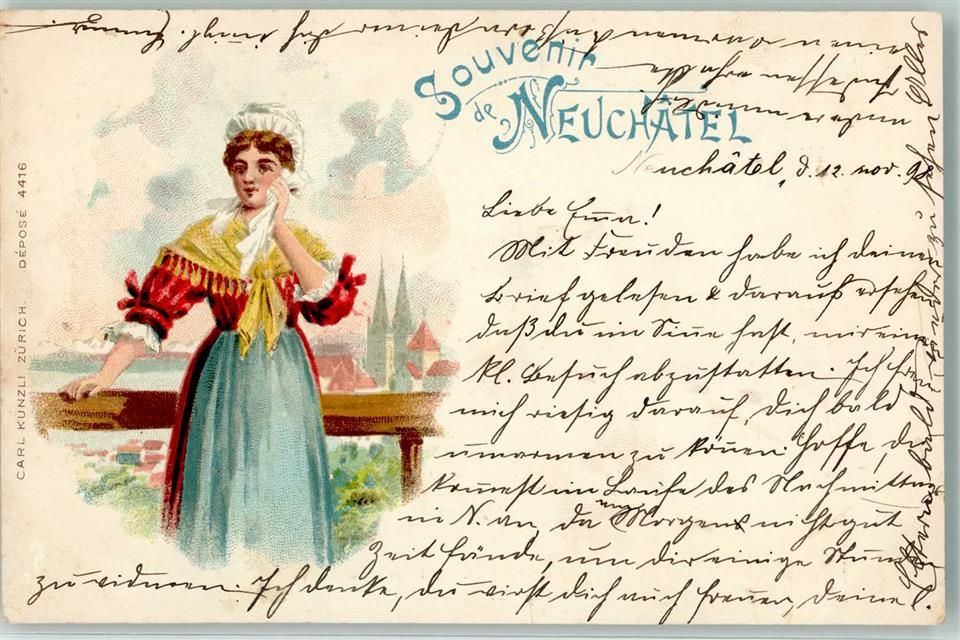 Souvenir
de NEUCHÂTEL
Neuchâtel, d. 12. nov. 9
Liebe Emma!
Mit Freuden habe ich deinen
Brief gelesen & daraus ersehen
daß du im Sinne hast, mir einen
kl. Besuch abzustatten. Ich freue
mich riesig darauf, dich bald
umarmen zu können. Hoffe, du
kommest im Laufe des Nachmittags
in N. an, da Morgens nicht gut
Zeit fände, um dir einige Stunden
zu widmen. Ich denke, du wirst dich auch freuen, deine
bald
unsern
einen warmen
CARL KÜNZLI ZÜRICH. DÉPOSÉ 4416